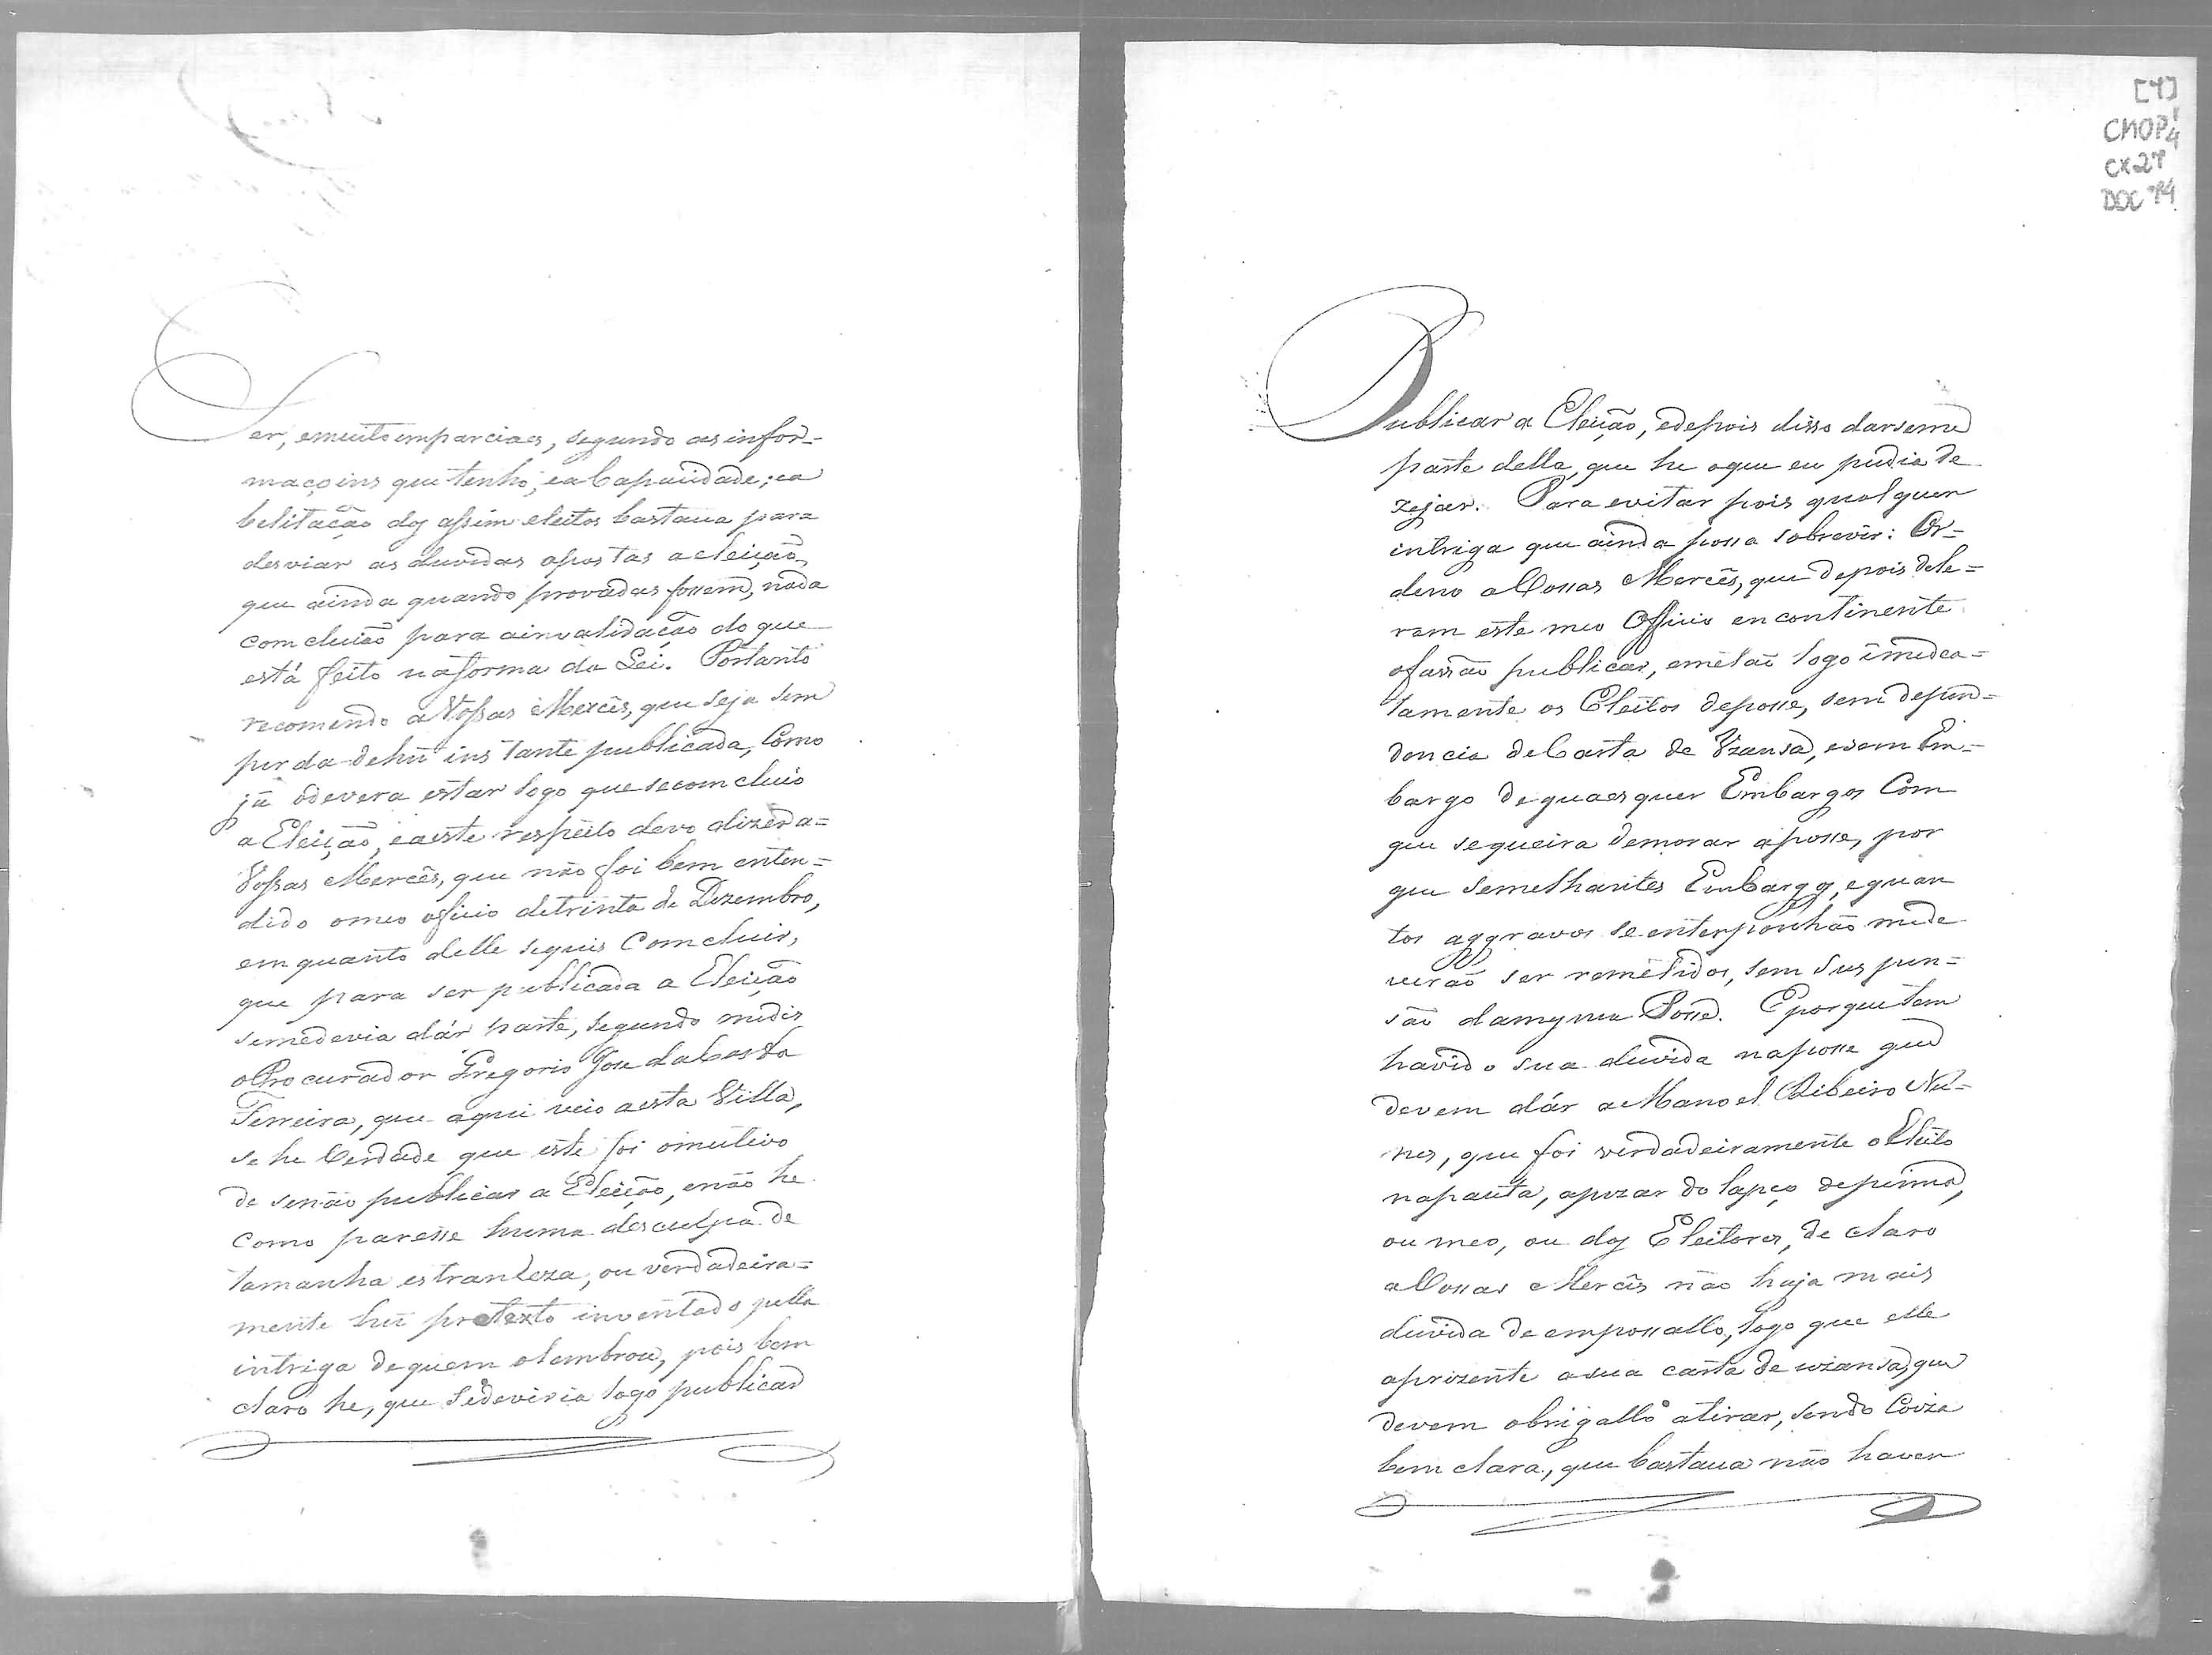 Ser, emuito imparciaes, segundo as infor-
maçoins que tenho, ea Capacidade; ea
belitação dos assim eleitos bastaua para
desviar as duvidas opostas a eleição,
que ainda quando provadas fossem, nada
comcluião para ainvalidação do que
está feito naforma da Lei. Portanto
recomendo a Vossas Mercês, que seja sem
perda dehũ instante publicada, Como
já odevera estar logo que secomcluio
a Eleição, eaeste respeito devo dizer a=
Vossas Mercês, que não foi bem enten=
dido omeo oficio detrinta de Dezembro,
emquanto delle sequis Comcluir,
que para ser publicada a Eleição
semedevia dár parte, segundo mediz
oProcurador Gregorio Joze daCosta
Ferreira, que aqui veio aesta Villa,
se he Verdade que este foi omutivo
de senão publicar a Eleição, enão he
Como paresse huma desculpa de
tamanha estranheza, ou verdadeira=
mente hũ pretexto inventado pella
intriga dequem olembrou, pois bem
claro he, que sedeviria logo publicar
[4]
CMOP
CX 27
DOC 74
Publicar a Eleição, edepois disso darseme
parte della, que he oque eu pudia de
zejar. Para evitar pois qualquer
intriga que ainda possa sobrevir: Or=
deno aVossas Mercês, que depois dele=
rem este meo Officio encontinente
ofassão publicar, emetão logo imedea=
tamente os Eleitos deposse, sem depen=
dencia deCarta de Uzansa, esem Em=
bargo dequaesquer Embargos Com
que sequeira demorar aposse, por
que semelhantes Embargos, equan
tos aggravos se enterponhão mede
verão ser remetidos, sem Suspen=
são damesma Posse. Eporque tem
havido sua duvida naposse que
devem dár a Manoel Ribeiro Nu=
nes, que foi verdadeiramente oEleito
napauta, apezar do lapço depenna,
ou meo, ou dos Eleitores, declaro
aVossas Mercês não haja mais
duvida de empossallo, logo que elle
aprizente asua carta de uzansa, que
devem obrigallo atirar, sendo Coiza
bem clara, que bastaua não haver